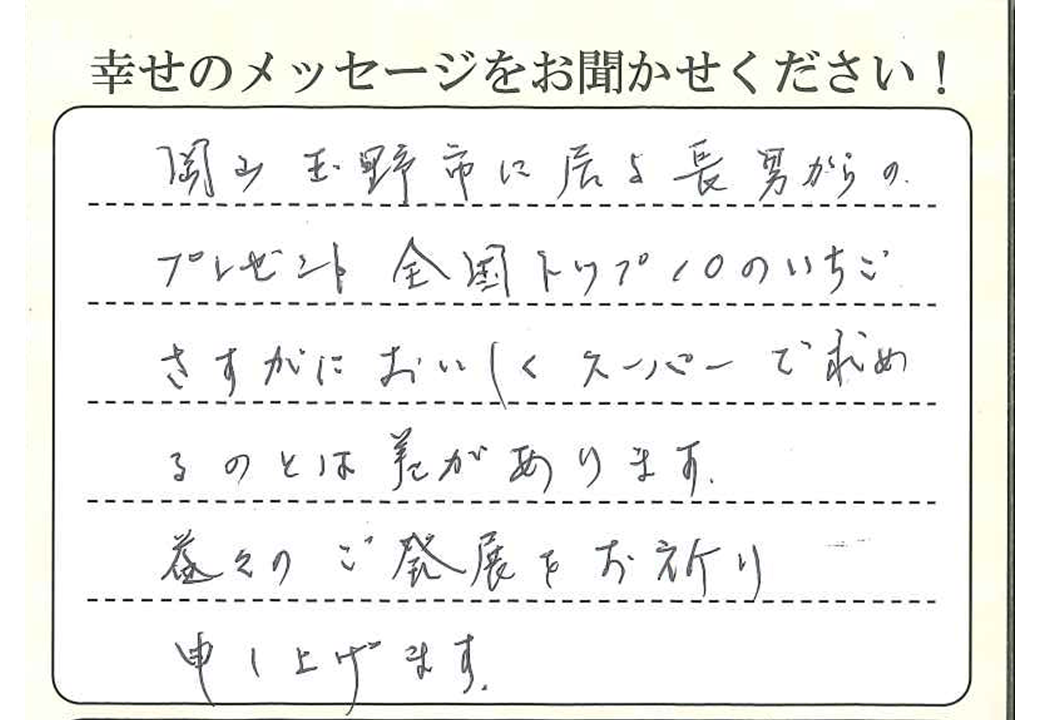 幸せのメッセージをお聞かせください!
岡山玉野市に居る長男からの
プレゼント 全国トップ10のいちご
さすがにおいしくスーパーで求め
るのとは差があります.
益々のご発展をお祈り
申し上げます.